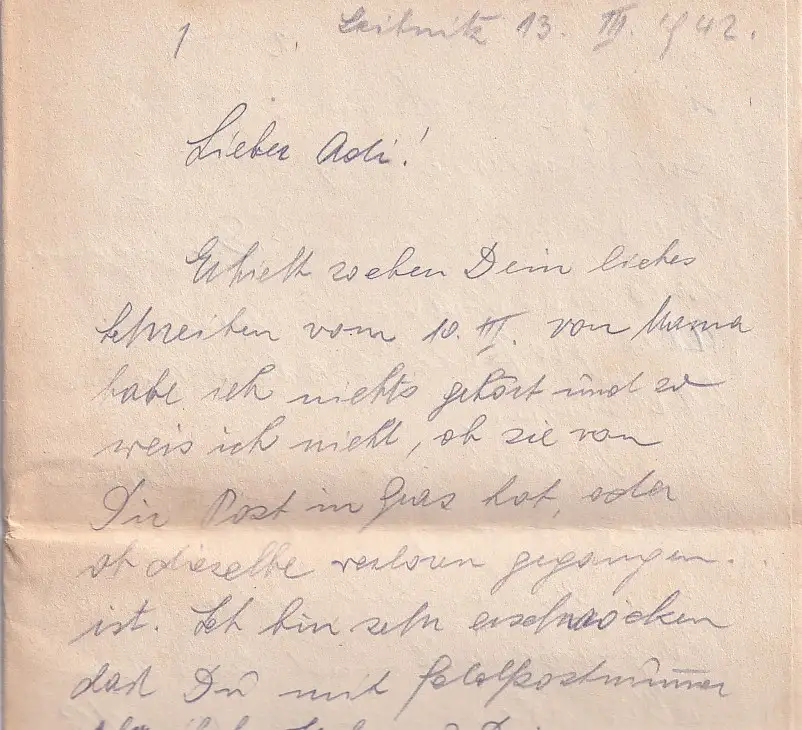 1
Leibnitz 13. III. 1942.
Lieber Adi!
Erhielt soeben Dein liebes
Schreiben vom 10. III. von Mama
habe ich nichts gehört und so
weis ich nicht, ob sie von
Dir Post in Graz hat, oder
ob dieselbe verloren gegangen
ist. Ich bin sehr erschrocken
daß Du mit Feldpostnummer